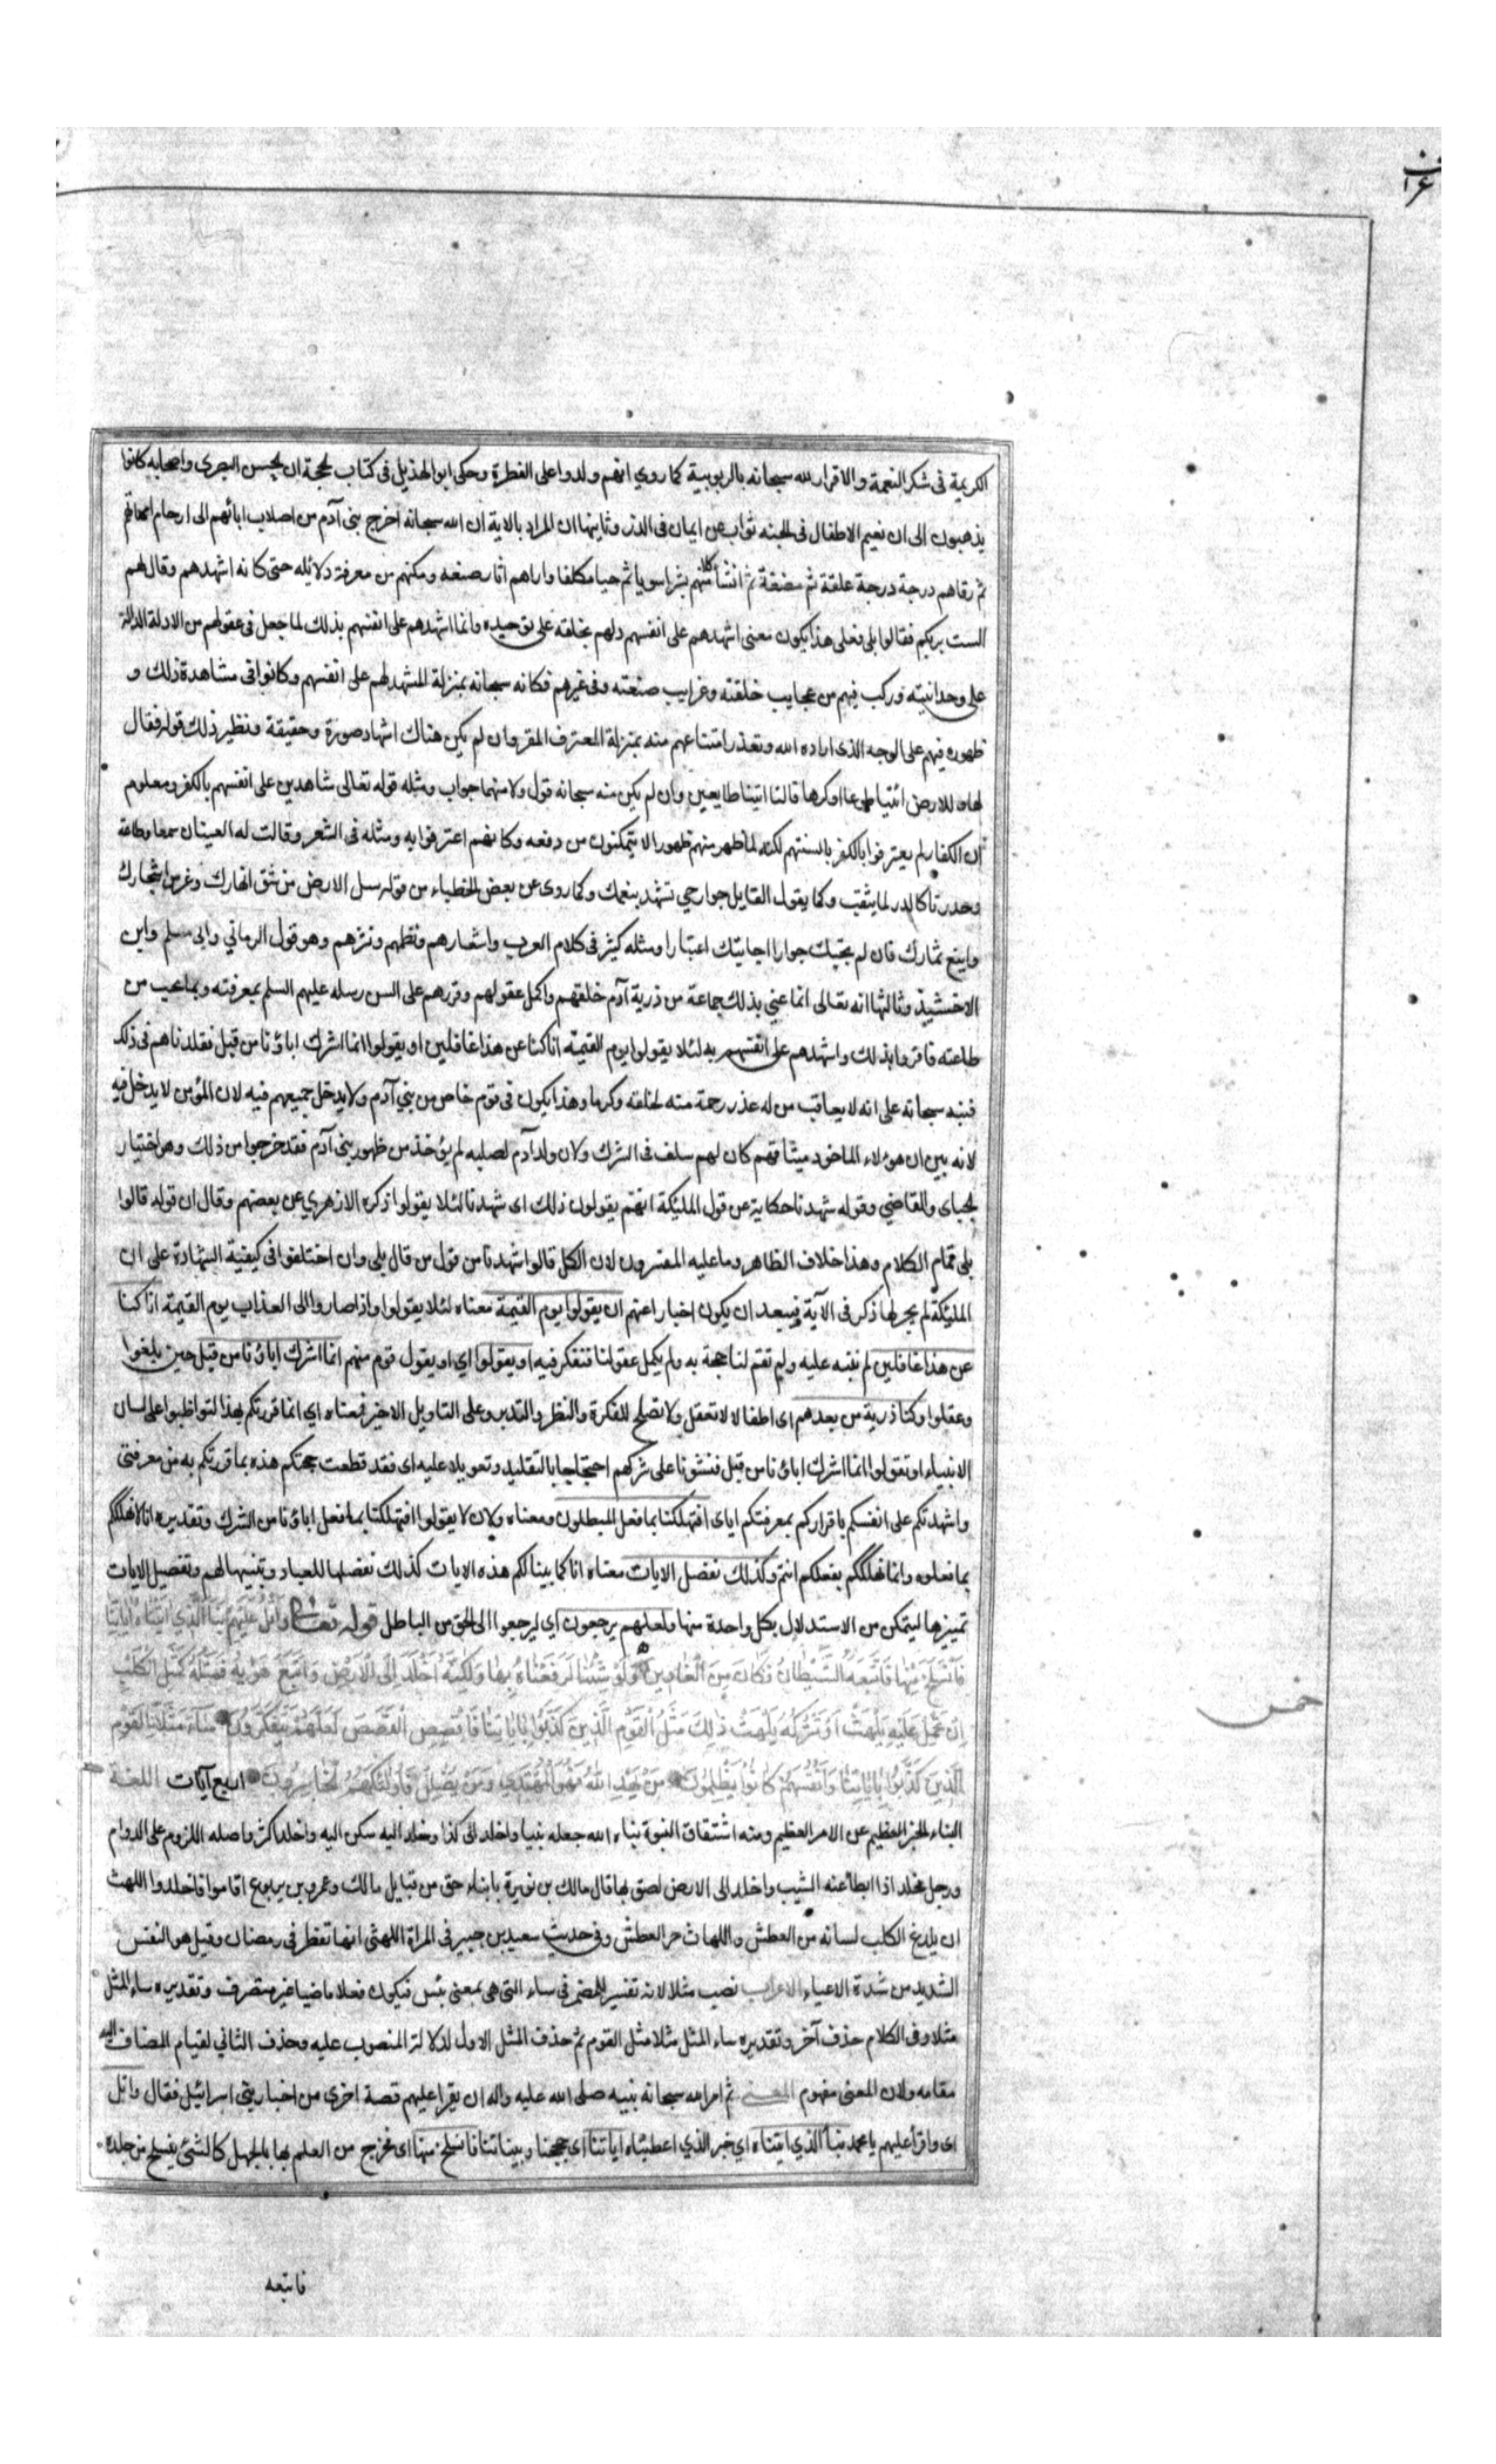 الكريمة في شكر النعمة والاقرار لله سبحانه بالربوبية كما روي انهم ولدوا على الفطرة وحكى ابو الهذيل في كتاب الحجة ان الحسن البصرى واصحابه كانوا
يذهبون الى ان نعيم الاطفال في الجنة ثواب عن ايمان في الذر وثانيها ان المراد بالاية ان الله سبحانه اخرج بني آدم من اصلاب ابائهم الى ارحام امهاتهم
ثم رقاهم درجة درجة علقة ثم مضغة ثم انشأ كلا منهم بشرا سويا ثم حيا مكلفا واراهم اثار صنعه ومكنهم من معرفة دلائله حتى كانه اشهدهم وقال لهم
الست بربكم فقالوا بلى فعلى هذا يكون معنى اشهدهم على انفسهم دلهم بخلقه على توحيده وانما اشهدهم على انفسهم بذلك لما جعل في عقولهم من الادلة الدالة
على وحدانيته وركب فيهم من عجايب خلقته وغرايب صنعته وفي غيرهم فكانه سبحانه بمنزلة المشهد لهم على انفسهم وكانوا في مشاهدة ذلك و
ظهوره فيهم على الوجه الذى اراده الله وتعذر امتناعهم منه بمنزلة المعترف المقر وان لم يكن هناك اشهاد صورة وحقيقة ونظير ذلك قوله فقال
لها وللارض ائتيا طوعا او كرها قالتا اتينا طايعين وان لم يكن منه سبحانه قول ولا منهما جواب ومثله قوله تعالى شاهدين على انفسهم بالكفر ومعلوم
ان الكفار لم يعترفوا بالكفر بالسنتهم لكنه لما ظهر منهم ظهورا لا يتمكنون من دفعه وكانهم اعترفوا به ومثله في الشعر وقالت له العينان سمعا وطاعة
وحدرتا كالدر لما يثقب وكما يقول القايل جوارحي تشهد بنعمك وكما روى عن بعض الخطباء من قوله سل الارض من شق انهارك وغرس اشجارك
واينع ثمارك فان لم تجبك حوارا اجابتك اعتبارا ومثله كثير في كلام العرب واشعارهم ونظمهم ونثرهم وهو قول الرماني وابى مسلم وابن
الاخشيذ وثالثها انه تعالى انما عني بذلك جماعة من ذرية آدم خلقهم واكمل عقولهم وقررهم على السن رسله عليهم السلم بمعرفته وبما يجب من
طاعته فاقروا بذلك واشهدهم على انفسهم به لئلا يقولوا يوم القيمة انا كنا عن هذا غافلين او يقولوا انما اشرك اباؤنا من قبل فقلدناهم في ذلك
فنبه سبحانه على انه لا يعاقب من له عذر رحمة منه لخلقه وكرما وهذا يكون في قوم خاص من بني آدم ولا يدخل جميعهم فيه لان المؤمن لا يدخل فيه
لانه بين ان هؤلاء الماخوذ ميثاقهم كان لهم سلف في الشرك ولان ولد آدم لصلبه لم يؤخذ من ظهور بني آدم فقد خرجوا من ذلك وهو اختيار
الجباى والقاضي وقوله شهدنا حكاية عن قول المليكة انهم يقولون ذلك اى شهدنا لئلا يقولوا ذكره الازهري عن بعضهم وقال ان قوله قالوا
بلى تمام الكلام وهذا خلاف الظاهر وما عليه المفسرون لان الكل قالوا شهدنا من قول من قال بلى وان اختلفوا في كيفية الشهادة على ان
المليكة لم يجر لها ذكر في الآية فيبعد ان يكون اخبارا عنهم ان يقولوا يوم القيمة معناه لئلا يقولوا واذا صاروا الى العذاب يوم القيمة انا كنا
عن هذا غافلين لم ننبه عليه ولم تقم لنا حجة به ولم يكمل عقولنا فنفكر فيه او يقولوا اي او يقول قوم منهم انما اشرك اباؤنا من قبل حين بلغوا
وعقلوا وكنا ذرية من بعدهم اى اطفالا لا تعقل ولا تصلح للفكرة والنظر والتدبر وعلى التاويل الاخير فمعناه اي انما قررتكم بهذا لتواظبوا على لسان
الانبياء او تقولوا انما اشرك اباؤنا من قبل فنشونا على شركهم احتجاجا بالتقليد وتعويلا عليه اى فقد قطعت حجتكم هذه بما قررتكم به من معرفتي
واشهدتكم على انفسكم باقراركم بمعرفتكم اياى افتهلكنا بما فعل المبطلون ومعناه ولان لا يقولوا افتهلكنا بما فعل اباؤنا من الشرك وتقديره انا لا نهلككم
بما فعلوه وانما نهلككم بفعلكم انتم وكذلك نفصل الايات معناه انا كما بينا لكم هذه الايات كذلك نفصلها للعباد ونبينها لهم وتفصيل الايات
تمييزها ليتمكن من الاستدلال بكل واحدة منها ولعلهم يرجعون اي ليرجعوا الى الحق من الباطل قوله تعالى واتل عليهم نبأ الذي اتيناه اياتنا
فانسلخ منها فاتبعه الشيطان فكان من الغاوين ولو شئنا لرفعناه بها ولكنه اخلد الى الارض واتبع هويه فمثله كمثل الكلب
ان تحمل عليه يلهث او تتركه يلهث ذلك مثل القوم الذين كذبوا باياتنا فاقصص القصص لعلهم يتفكرون ساء مثلا القوم
الذين كذبوا باياتنا وانفسهم كانوا يظلمون من يهد الله فهو المهتدي ومن يضلل فاولئك هم الخاسرون اربع آيات اللغة
النباء الخبر العظيم عن الامر العظيم ومنه اشتقاق النبوة نباه الله جعله نبيا واخلد الى كذا وخلد اليه سكن اليه واخلد اكثر واصله اللزوم على الدوام
ورجل مخلد اذا ابطأ عنه الشيب واخلد الى الارض لصق بها قال مالك بن نويرة بابناء حى من قبايل مالك وعمرو بن يربوع اقاموا فاخلدوا اللهث
ان يدلع الكلب لسانه من العطش واللهاث حر العطش وفي حديث سعيد بن جبير في المراة اللهثى انها تفطر في رمضان وقيل هو النفس
الشديد من شدة الاعياء الاعراب نصب مثلا لانه تفسير للمضمر في ساء التي هى بمعنى بئس فيكون فعلا ماضيا غير متصرف وتقديره ساء المثل
مثلا وفي الكلام حذف آخر وتقديره ساء المثل مثلا مثل القوم ثم حذف المثل الاول لدلالة المنصوب عليه وحذف الثاني لقيام المضاف اليه
مقامه ولان المعنى مفهوم المعنى ثم امر الله سبحانه نبيه صلى الله عليه واله ان يقرا عليهم قصة اخرى من اخبار بني اسرائيل فقال واتل
اى واقرأ عليهم يا محمد نبأ الذي اتيناه اي خبر الذي اعطيناه اياتنا اى حججنا وبيناتنا فانسلخ منها اى فخرج من العلم بها بالجهل كالشئ ينسلخ من جلده
خمس
فاتبعه